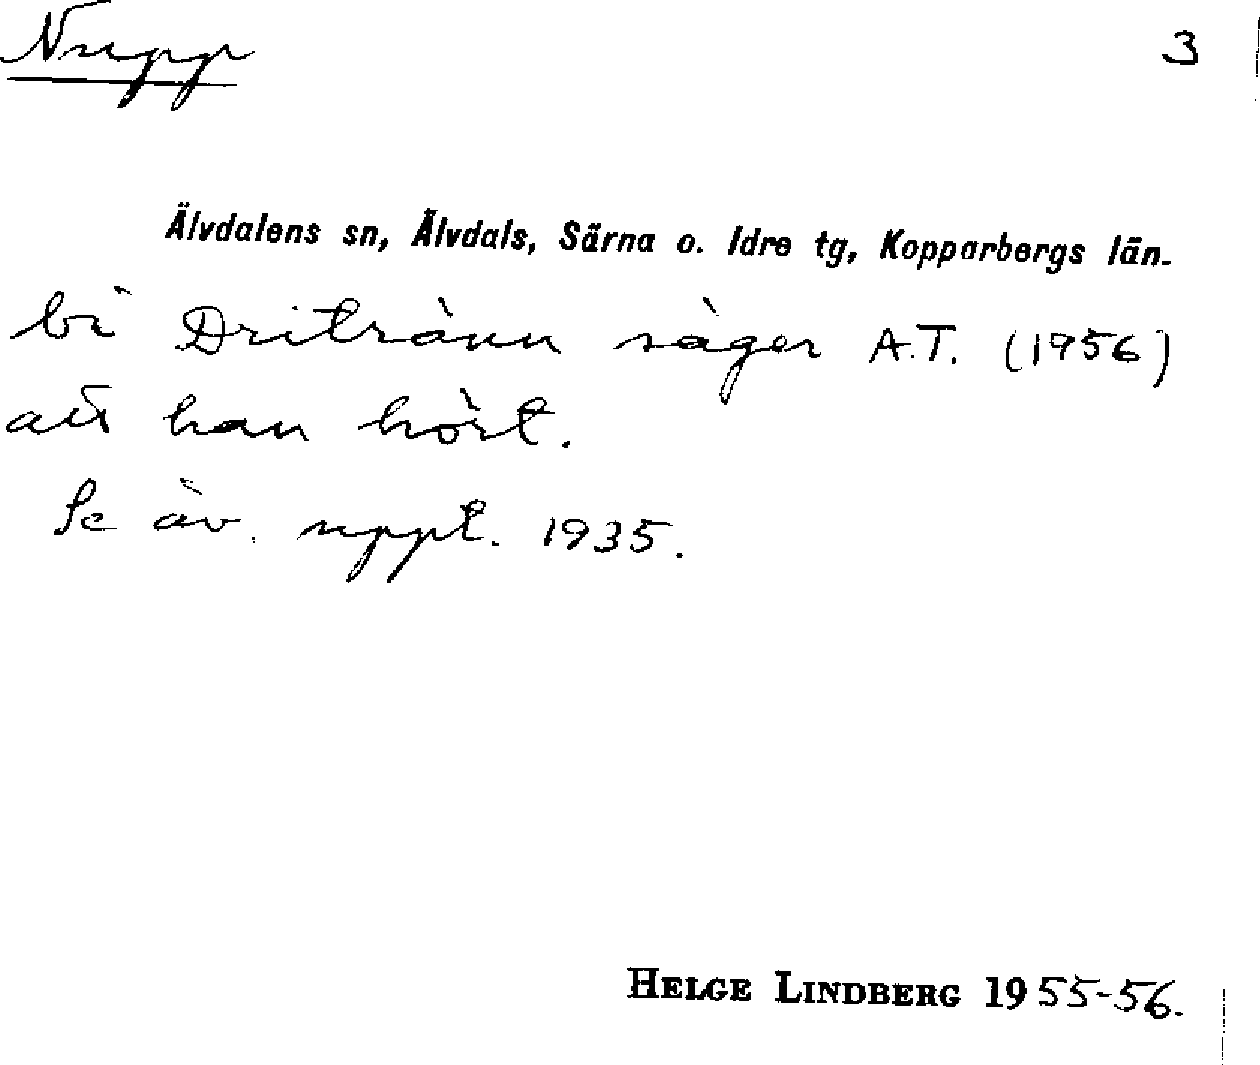 Nupp 3
Älvdalens sn, Älvdals, Särna o. Idre tg, Kopparbergs län.
bì Dritrànn säger A.T. (1956)
att han hört.
Se äv. uppt. 1935.
HELGE LINDBERG 1955-56.